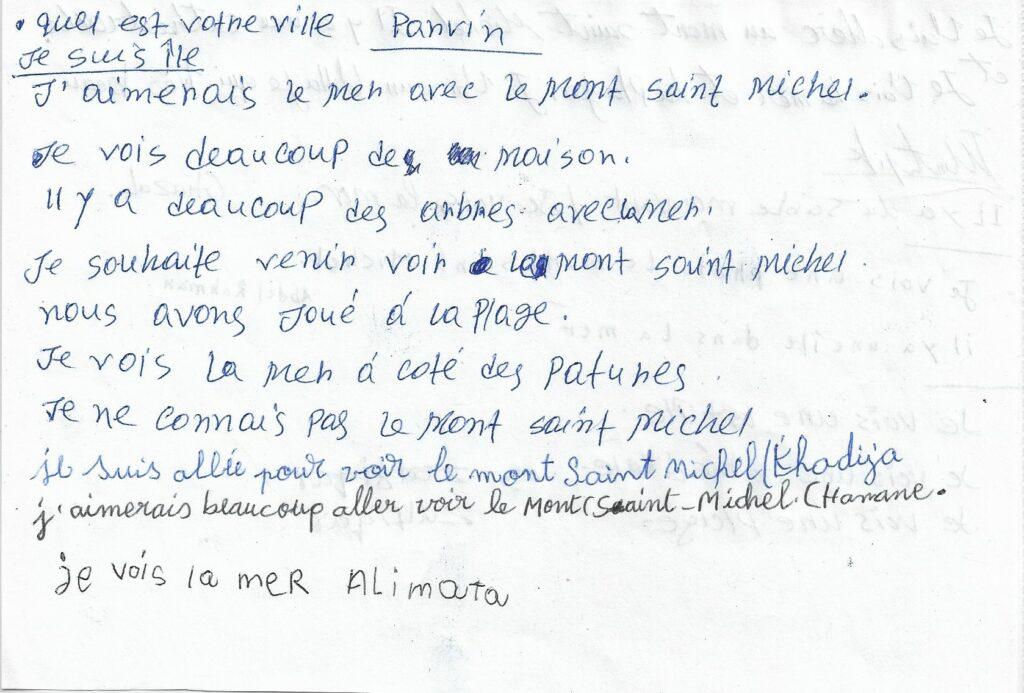 • quel est votre ville Panvin
Je suis Île
J'aimenais le men avec le mont saint michel.
Je vois deaucoup des maison.
il y a deaucoup des anbnes aveclamen.
Je souhaite venin voin la mont saint michel.
nous avons Joué á la Plage.
Je vois la men á coté des Patunes.
Je ne connais pas le mont saint michel
je suis allée pour voir le mont Saint Michel(Khadija
j'aimerais beaucoup aller voir le Mont(Saint-Michel.(Hanane.
je vois la meR ALimata